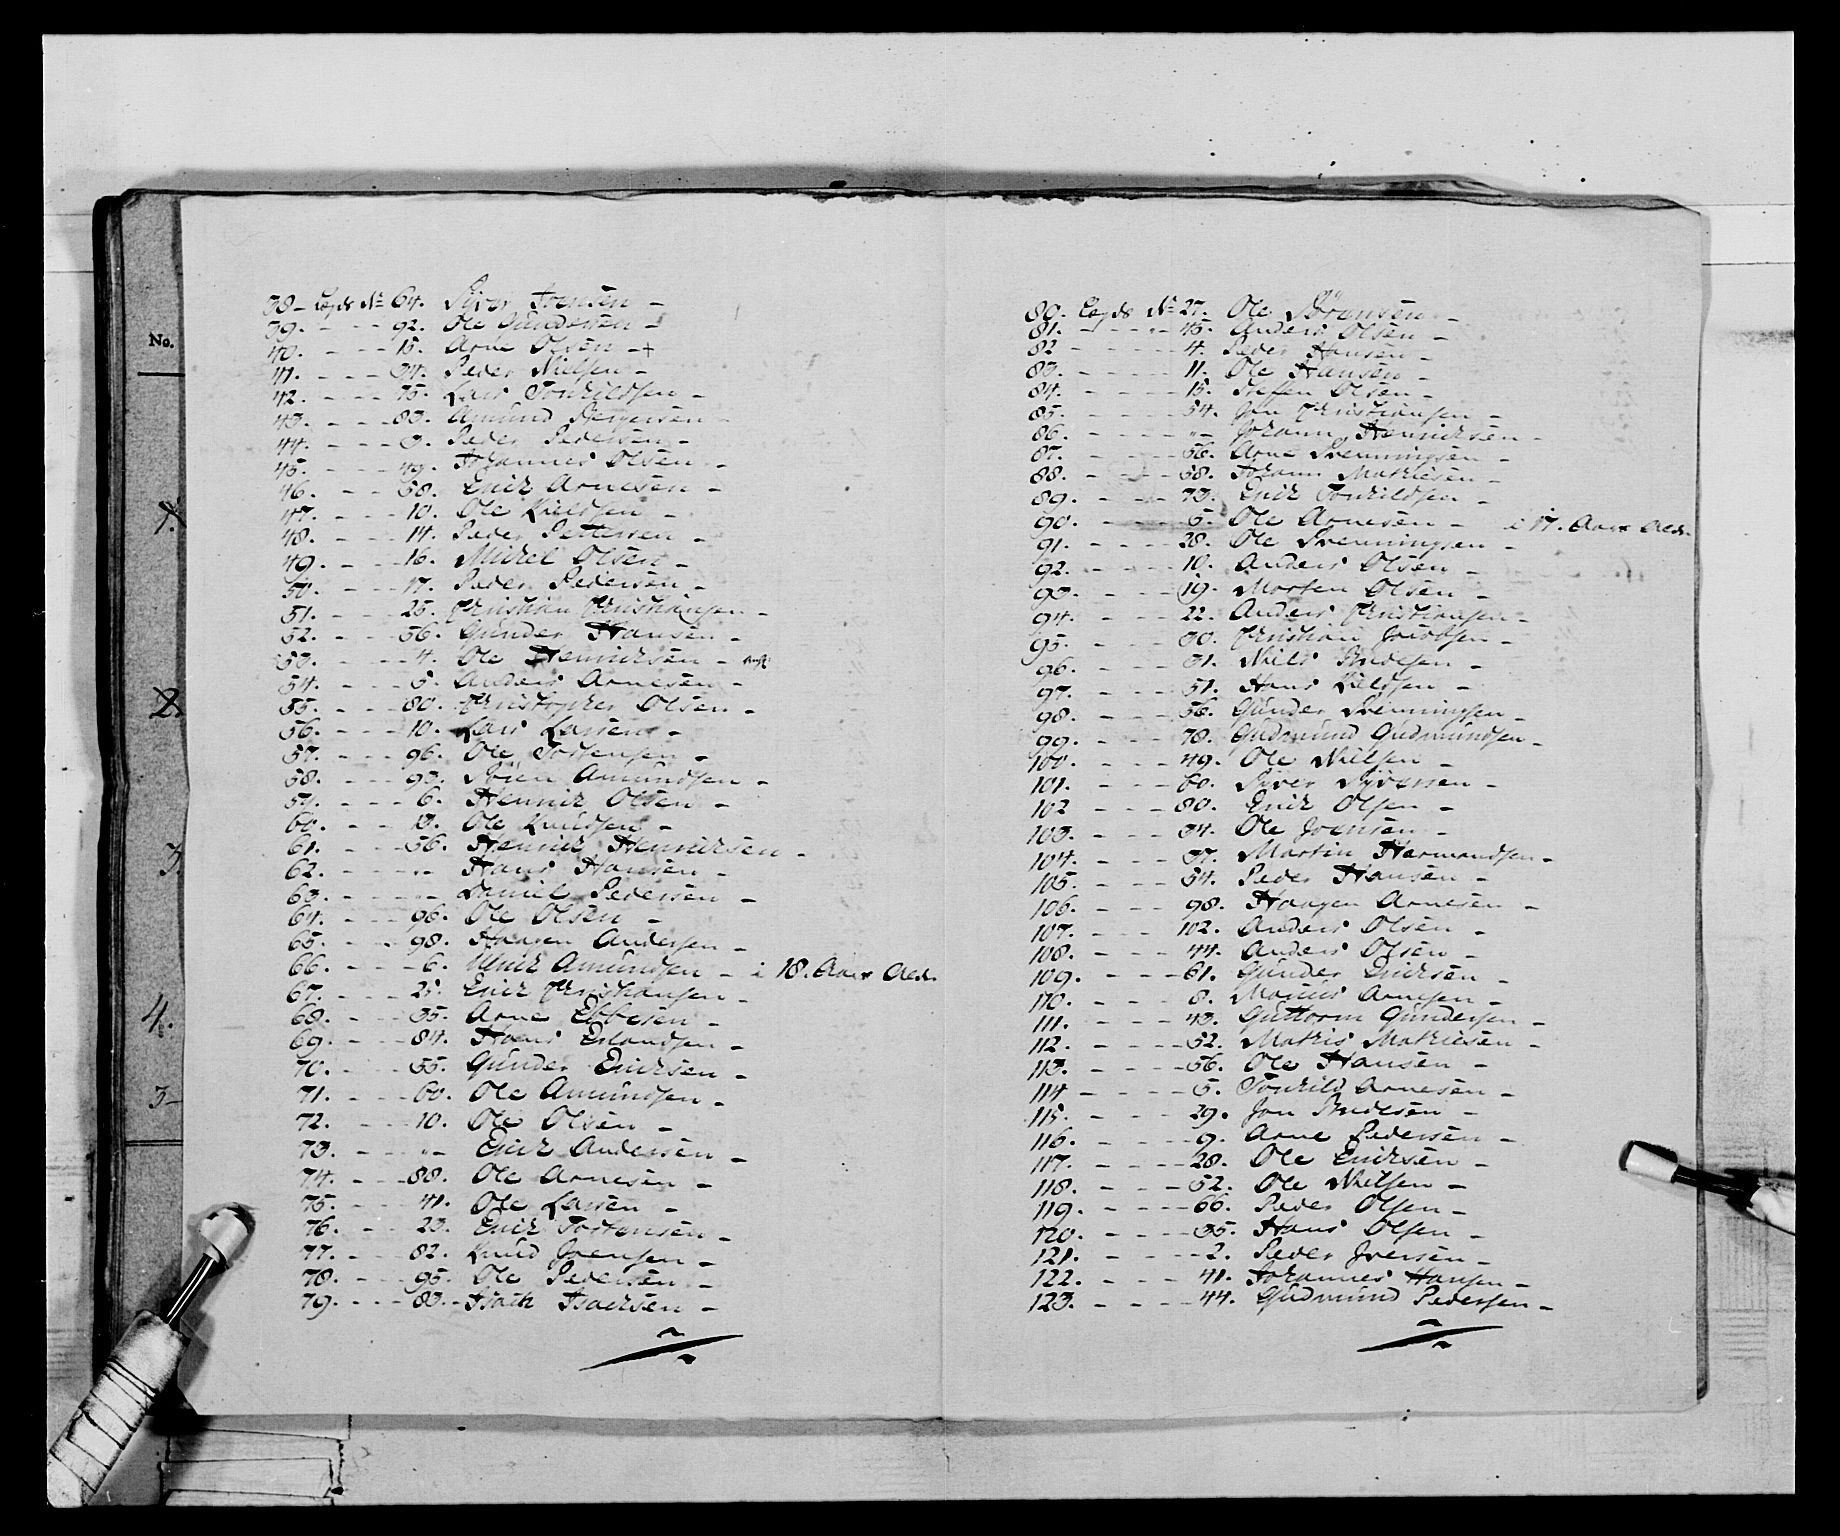 No.
1.
2.
3
4.
3-
38- Lægds No 64. Syver Joensen -
39. - - - 92. Ole Gundersen -
40. - - - 15. Arne Olsen -+
41. - - - 34. Peder Nielsen -
42. - - - 75. Lars Tonrildsen -
43. - - - 83. Amund -
44. - - - 3. Peder Pedersen -
45. - - - 49. Johannes Olsen -
46. - - - 58. Erick Arnesen -
47. - - - 10. Ole Kieldsen -
48. - - - 14. Peder Pettersen -
49. - - - 16. Mickel Olsen -
50. - - - 17. Peder Pedersen -
51. - - - 25. Christian Christiansen -
52. - - - 56. Gunder Hansen -
53. - - - 4. Ole Henricksen -
54. - - - 5. Anders Arnesen -
55. - - - 80. Christopher Olsen -
56. - - - 10. Lars Larsen -
57. - - - 96. Ole Torstensen -
58. - - - 93. Søren Amundsen -
59. - - - 6. Henrick Olsen -
60. - - - 13. Ole Knudsen -
61. - - - 56. Henrick Henricksen -
62. - - - „- Hans Hansen -
63. - - - „- Daniel Pedersen -
64. - - - 96. Ole Olsen -
65. - - - 98. Haagen Andersen -
66. - - - 6. Ulrick Amundsen - i 18. Aars Ald.
67. - - - 25. Erick Christiansen -
68. - - - 35. Arne Ebbesen -
69. - - - 84. Hans Erlandsen -
70. - - - 55. Gunder Ericksen -
71. - - - 60. Ole Amundsen -
72. - - - 10. Ole Olsen -
73. - - - „- Erick Andersen -
74. - - - 88. Ole Arnesen -
75. - - - 41. Ole Larsen -
76. - - - 23. Erick Torstensen -
77. - - - 82. Knud Joensen -
78. - - - 95. Ole Pedersen -
79. - - - 83. - Isack Isacksen -
80. Lægds No 27. Ole Sørensen -
81. - - - 45. Anders Olsen -
82 - - - 4. Peder Hansen -
83. - - - 11. Ole Hansen -
84. - - - 15. Steffen Olsen -
85. - - - 54. Jon Christiansen -
86. - - - „- Johann Henricksen -
87. - - - 56. Arne Svenningsen -
88. - - - 58. Johann Mathiesen -
89. - - - 73. Erick Tonrildsen -
90. - - - 5. Ole Arnesen - i 17. Aars Ald.
91. - - - 28. Ole Svenningsen -
92. - - - 10. Anders Olsen -
93. - - - 19. Morten Olsen -
94. - - - 22. Anders Christiansen -
95. - - - 30. Christian Jacobsen -
96. - - - 31. Niels -
97. - - - 51. Hans Kieldsen -
98. - - - 56. Gunder Svenningsen -
99. - - - 78. Gudmund Gudmundsen -
100. - - - 49. Ole Nielsen -
101. - - - 60. Syver Syversen -
102 - - - 80. Erick Olsen -
103. - - - 34. Ole Joensen -
104. - - - 37. Martin Harmandsen -
105. - - - 54. Peder Hansen -
106. - - - 98. Haagen Arnesen -
107. - - - 102. Anders Olsen -
108. - - - 44. Anders Olsen -
109. - - - 61. Gunder Ericksen -
110. - - - 8. Marius Arnesen -
111. - - - 43. Guttorm Gundersen -
112. - - - 52. Mathis Mathiesen -
113. - - - 56. Ole Hansen -
114 - - - 5. Tonrild Arnesen -
115. - - - 29. Jon -
116. - - - 9. Arne Pedersen -
117. - - - 28. Ole Ericksen -
118. - - - 52. Ole Nielsen -
119. - - - 66. Peder Olsen -
120. - - - 35. Hans Olsen -
121. - - - 2. Peder Iversen -
122. - - - 41. Johannes Hansen -
123. - - - 44. Gudmund Pedersen -